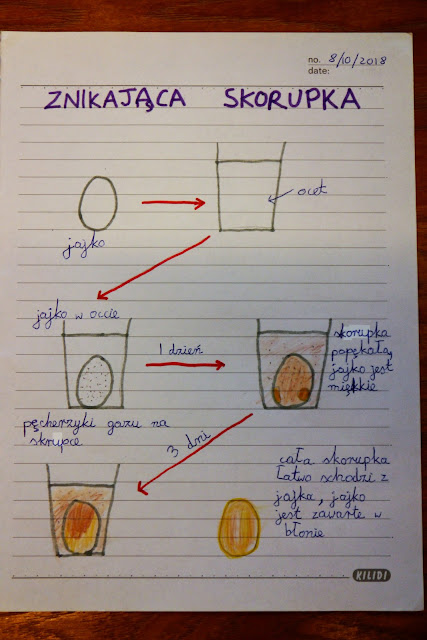 no. 8/10/2018
date:
ZNIKAJĄCA SKORUPKA
ocet
jajko
jajko w occie
1 dzień
skorupka
popękała,
jajko jest
miękkie
pęcherzyki gazu na
skrupce
3 dni
cała skorupka
łatwo schodzi z
jajka, jajko
jest zawarte w
błonie
KILIDI